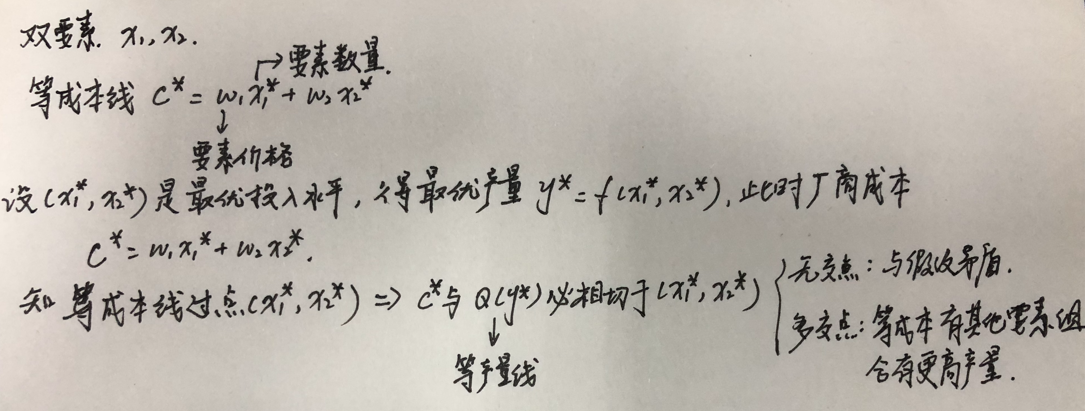 双要素. x₁, x₂.
↱要素数量.
等成本线 C* = w₁x₁* + w₂x₂*
↓
要素价格
设(x₁*, x₂*)是最优投入水平, 得最优产量 y* = f(x₁*, x₂*), 此时厂商成本
C* = w₁x₁* + w₂x₂*.
知 等成本线过点(x₁*, x₂*) ⇒ C*与 Q(y*)必相切于(x₁*, x₂*)
↓
等产量线
无交点: 与假设矛盾.
多交点: 等成本有其他要素组
合有更高产量.